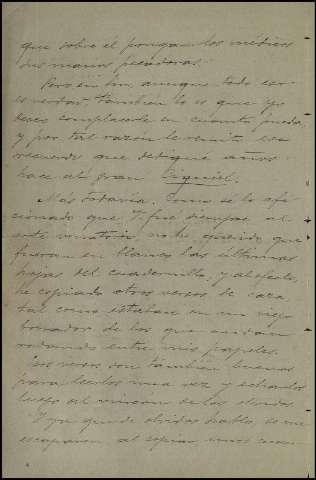 que sobre él pongan los médicos
sus manos pecadoras.
Pero en fin, aunque todo eso
es verdad, también lo es que yo
deseo complacerle en cuanto pueda,
y por tal razón le remito ese
recuerdo que dediqué años
hace al gran
Más todavía. Como sé lo afi-
cionado que V. fué siempre al
arte no he querido que
fueran en blanco las últimas
hojas del cuadernillo, y al efecto,
he copiado otros versos de caza
tal como estaban en un viejo
borrador de los que andan
rodando entre mis papeles.
Esos versos son también buenos
para leerlos una vez y echarlos
luego al rincón de los olvidos.
Y ya que de olvidos hablo, se me
escaparon al copiar unos